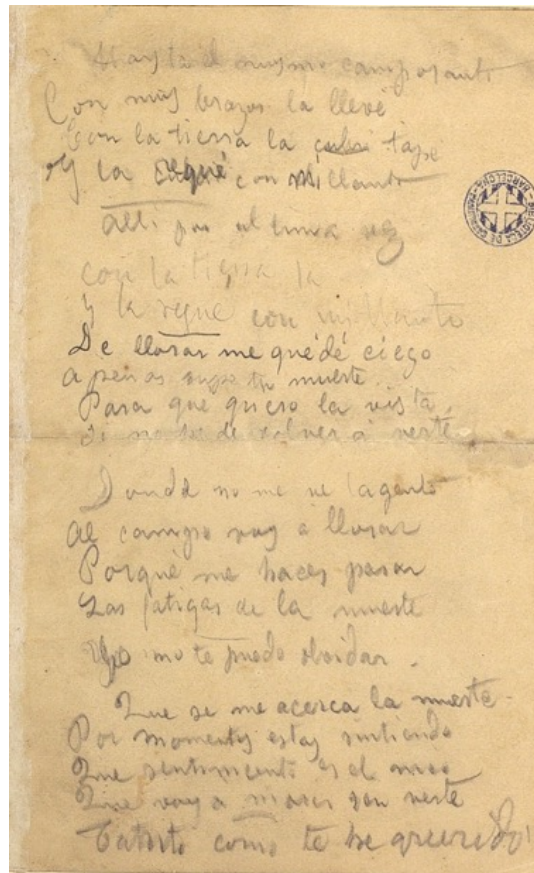 Hasta el mismo camposanto
Con mis brazos la llevé
Con la tierra la cubri tapé
Y la regué con mi llanto
Alli por ultima vez
con la tierra la
y la regue con mi llanto
De llorar me quédé ciego
apenas supe tu muerte
Para que quiero la vista
si no he de volver a verte
Donde no me ve la gente
Al campo voy a llorar
Porqué me haces pasar
Las fatigas de la muerte
Yo no te puedo olvidar.
Que se me acerca la muerte
Por momentos estoy sintiendo
Que sentimiento es el mio
Que voy a morir sin verte
Tatirto como te he querido!
BIBLIOTECA DE CATALUNYA BARCELONA